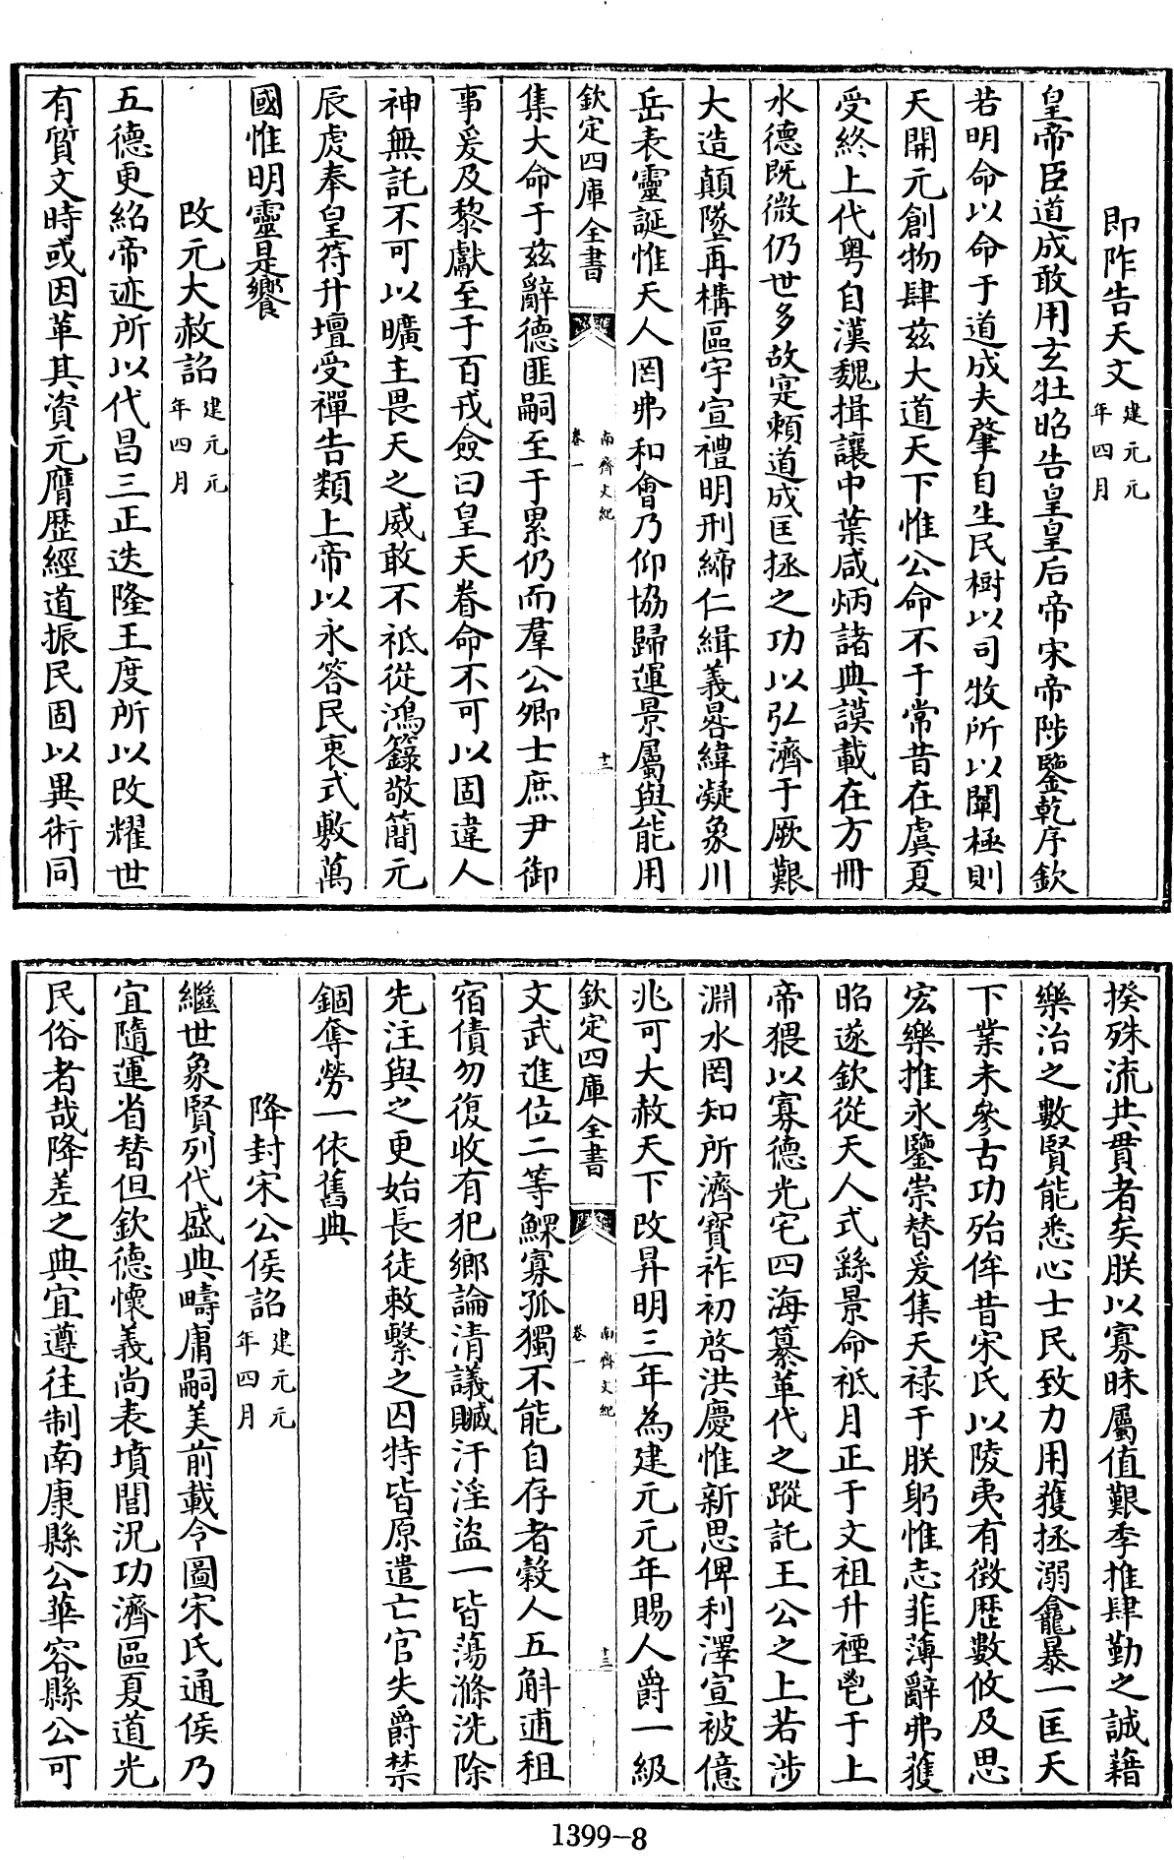 即阼告天文建元元年四月
皇帝臣道成敢用玄牡昭告皇皇后帝宋帝陟鑒乾序欽
若明命以命于道成夫肇自生民樹以司牧所以闡極則
天開元創物肆兹大道天下惟公命不于常昔在虞夏
受終上代粤自漢魏揖讓中葉咸炳諸典謨載在方冊
水德既微仍世多故寔頼道成匡拯之功以弘濟于厥艱
大造顛墜再構區宇宣禮明刑締仁緝義晷緯凝象川
岳表靈誕惟天人罔弗和會乃仰協歸運景屬與能用
欽定四庫全書
南齊文紀
卷一
十二
集大命于兹辭德匪嗣至于累仍而羣公卿士庶尹御
事爰及黎獻至于百戎僉曰皇天眷命不可以固違人
神無託不可以曠主畏天之威敢不祗從鴻籙敬簡元
辰虔奉皇符升壇受禪告類上帝以永答民衷式敷萬
國惟明靈是饗
改元大赦詔建元元年四月
五德更紹帝迹所以代昌三正迭隆王度所以改耀世
有質文時或因革其資元膺歴經道振民固以異術同
揆殊流共貫者矣朕以寡昧屬值艱季推肆勤之誠藉
樂治之數賢能悉心士民致力用獲拯溺龕暴一匡天
下業未參古功殆侔昔宋氏以陵夷有徴歴數攸及思
宏樂推永鑒崇替爰集天禄于朕躬惟志菲薄辭弗獲
昭遂欽從天人式繇景命祗月正于文祖升禋鬯于上
帝猥以寡德光宅四海纂革代之蹤託王公之上若涉
淵水罔知所濟寳祚初啓洪慶惟新思俾利澤宣被億
兆可大赦天下改昇明三年為建元元年賜人爵一級
欽定四庫全書
南齊文紀
卷一
十三
文武進位二等鰥寡孤獨不能自存者穀人五斛逋租
宿債勿復收有犯鄉論清議贓汙淫盜一皆蕩滌洗除
先注與之更始長徒敕繫之囚特皆原遣亡官失爵禁
錮奪勞一依舊典
降封宋公侯詔建元元年四月
繼世象賢列代盛典疇庸嗣美前載令圖宋氏通侯乃
宜隨運省替但欽德懷義尚表墳閭況功濟區夏道光
民俗者哉降差之典宜遵往制南康縣公華容縣公可
1399-8